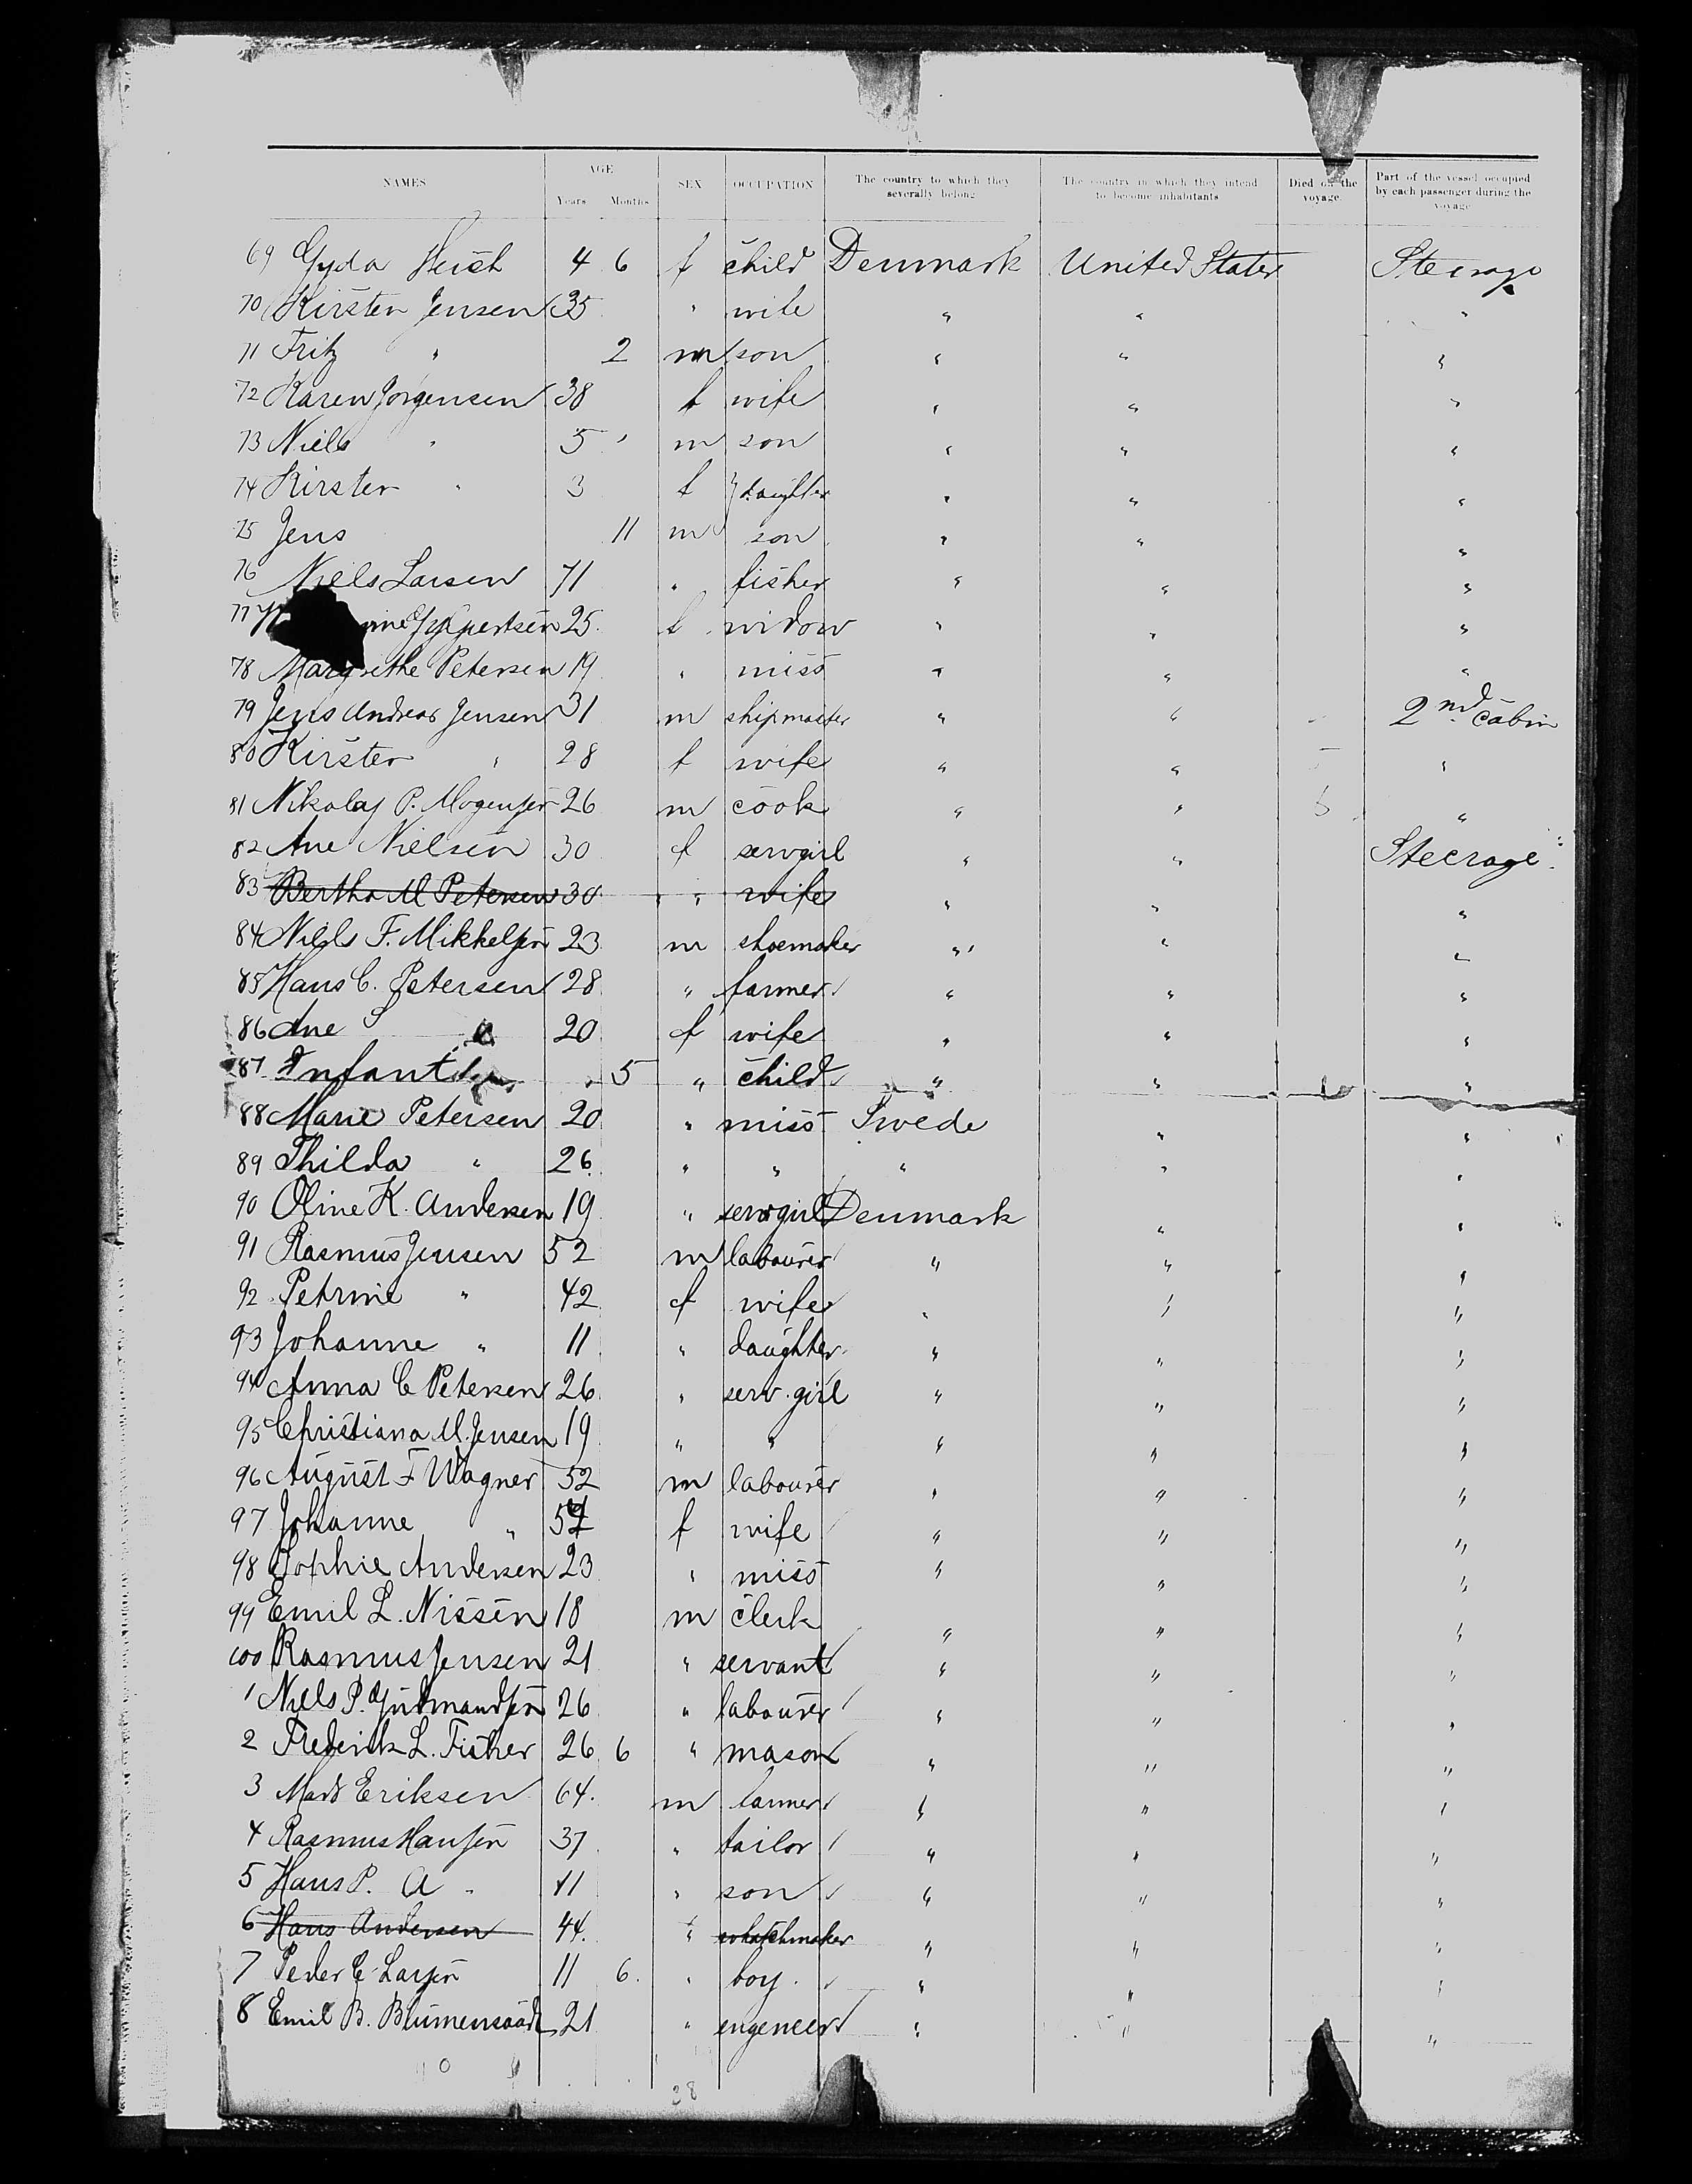 NAMES AGE SEX OCCUPATION The country to which they severally belong The country in which they intend to become inhabitants Died on the voyage Part of the vessel occupied by each passenger during the voyage
Years Months
69 Gyda 4 6 f child Denmark United States Steerage
70 Kirsten Jensen 35 " wife " " "
71 Fritz " 2 m son " " "
72 Karen Jorgensen 38 f wife " " "
73 Niels " 5 m son " " "
74 Kirsten " 3 f daughter " " "
75 Jens 11 m son " " "
76 Niels Larsen 71 " fisher " " "
77 25 f widow " " "
78 Margrethe Petersen 19 " miss " " "
79 Jens Andreas Jensen 31 m shipmaster " " 2nd cabin
80 Kirsten " 28 f wife " " "
81 Nikolaj P. Mogensen 26 m cook " " "
82 Ane Nielsen 30 f servgirl " " Steerage
83 Bertha M Petersen 30 " wife " " "
84 Niels F. Mikkelsen 23 m shoemaker " " "
85 Hans C. Petersen 28 " farmer " " "
86 Ane S " 20 f wife " " "
87 Infant 5 " child " " "
88 Marie Petersen 20 " miss Swede " "
89 Thilda " 26 " " " " "
90 Oline K. Andersen 19 " servgirl Denmark " "
91 Rasmus Jensen 52 m labourer " " "
92 Petrine " 42 f wife " " "
93 Johanne " 11 " daughter " " "
94 Anna C Petersen 26 " serv. girl " " "
95 Christiana M. Jensen 19 " " " " "
96 August F Wagner 52 m labourer " " "
97 Johanne " f wife " " "
98 Sophie Andersen 23 " miss " " "
99 Emil L. Nissen 18 m clerk " " "
100 Rasmus Jensen 21 " servant " " "
1 Niels P. Gudmandsen 26 " labourer " " "
2 Frederik L. Fisher 26 6 " mason " " "
3 Mads Eriksen 64. m farmer " " "
4 Rasmus Hansen 37 " tailor " " "
5 Hans P. A " 11 " son " " "
6 Hans Andersen 44. " whatchmaker " " "
7 Peder C Larsen 11 6. " boy. " " "
8 Emil B. Blumensaadt 21 " engeneer " " "
28